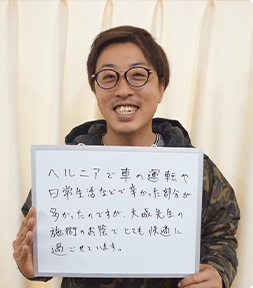 ヘルニアで車の運転や
日常生活などで辛かった部分が
多かったのですが、大成先生の
施術のお陰でとても快適に
過ごせています。